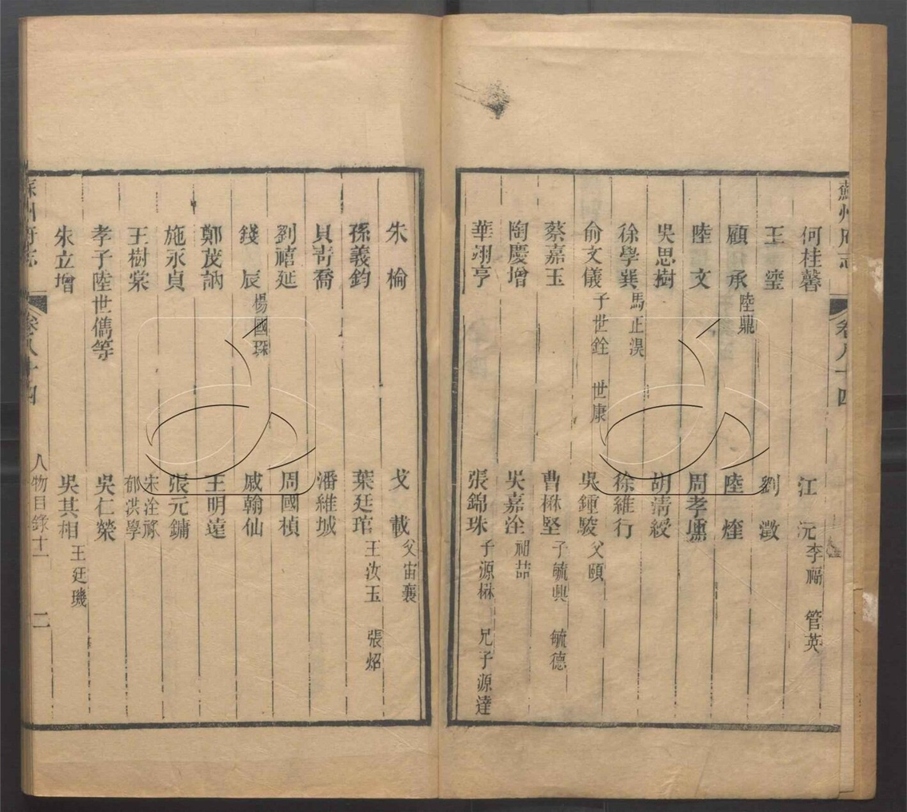 蘇州府志 卷八十四
何桂馨 江沅 李福 管英
王鎏 劉澂
顧承 陸鼎 陸煃
陸文 周孝壎
吳思樹 胡清綬
徐學巽 馬正淏 徐維行
俞文儀 子世銓 世康 吳鍾駿 父頤
蔡嘉玉 曹楙堅 子毓興 毓德
陶慶增 吳嘉洤 祖喆
華翊亨 張錦珠 子源楙 兄子源達
朱榆 戈載 父宙襄
孫義鈞 葉廷琯 王汝玉 張炤
貝青喬 潘維城
劉禧延 周國楨
錢辰 楊國琛 戚翰仙
鄭茂訥 王明遠
施永貞 張元鏞
王樹棠 郁洪學
孝子陸世儁等 吳仁榮
朱立增 吳其相 王廷璣
蘇州府志 卷八十四 人物目錄十一 二